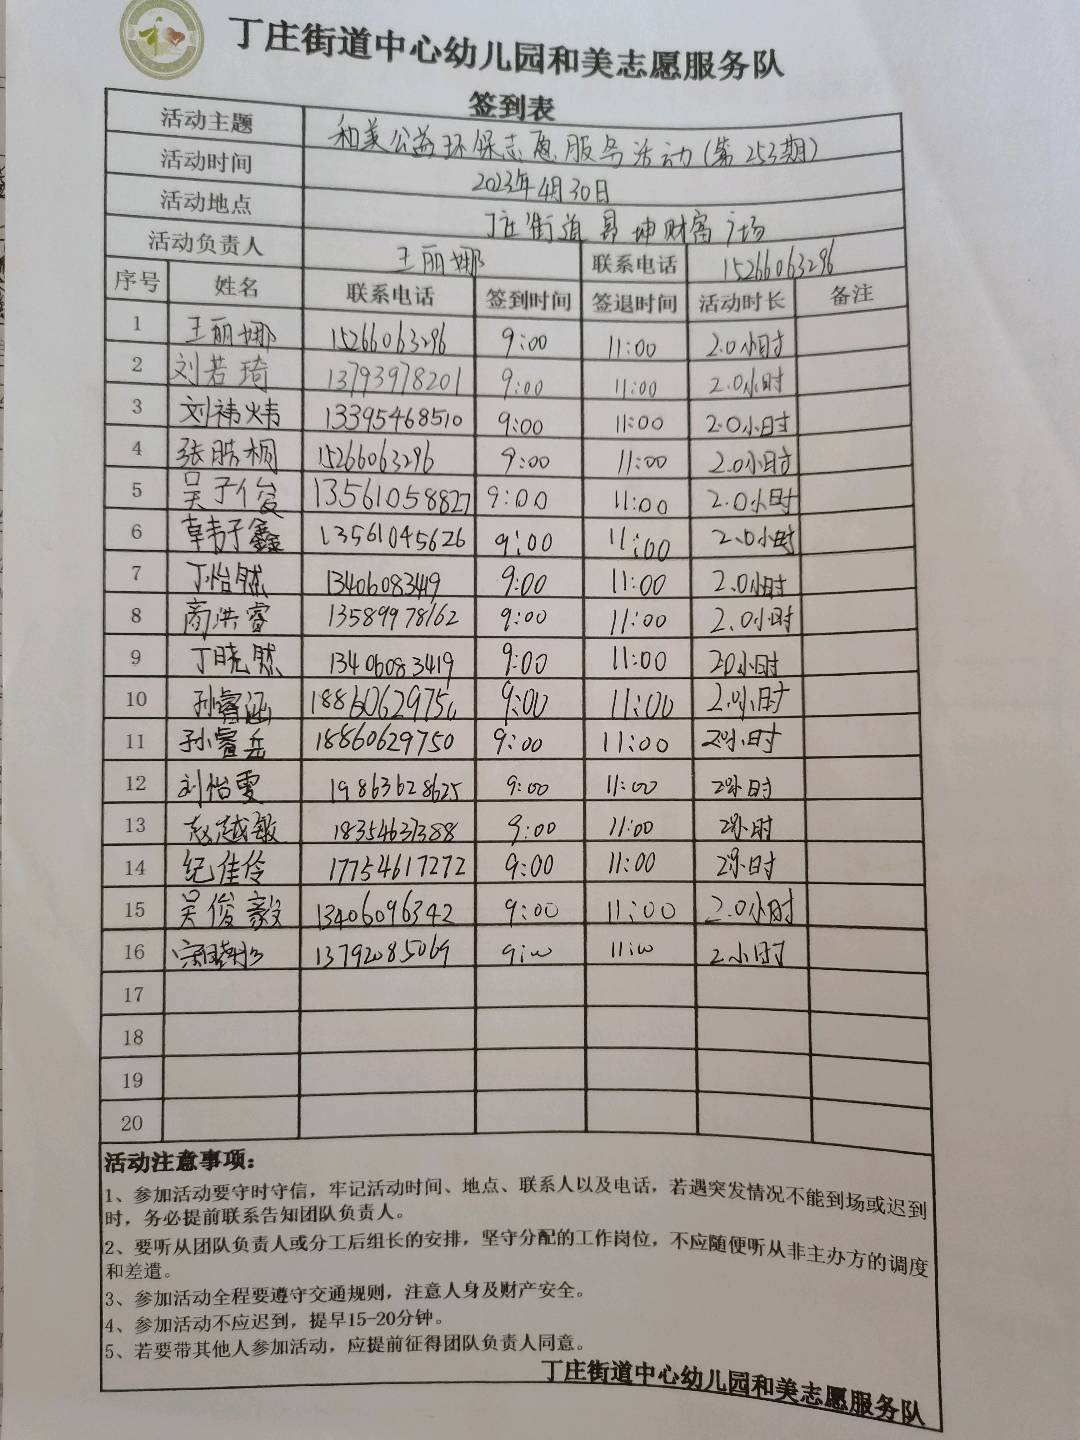 丁庄街道中心幼儿园和美志愿服务队
签到表
活动主题 和美公益环保志愿服务活动(第253期)
活动时间 2023年4月30日
活动地点 丁庄街道昌坤财富广场
活动负责人 王丽娜 联系电话 15266063296
序号 姓名 联系电话 签到时间 签退时间 活动时长 备注
1 王丽娜 15266063296 9:00 11:00 2.0小时
2 刘若琦 13793978201 9:00 11:00 2.0小时
3 刘祎炜 13395468510 9:00 11:00 2.0小时
4 张皓桐 15266063296 9:00 11:00 2.0小时
5 吴子俊 13561058827 9:00 11:00 2.0小时
6 韩子鑫 13561045626 9:00 11:00 2.0小时
7 丁怡然 13406083419 9:00 11:00 2.0小时
8 商洪睿 13589978162 9:00 11:00 2.0小时
9 丁晓然 13406083419 9:00 11:00 20小时
10 孙睿涵 18860629750 9:00 11:00 2.0小时
11 孙睿岳 18860629750 9:00 11:00 2小时
12 刘怡雯 19863628625 9:00 11:00 2小时
13 赵越敏 18354637388 9:00 11:00 2小时
14 纪佳伶 17754617272 9:00 11:00 2小时
15 吴俊毅 13406096342 9:00 11:00 2.0小时
16 13792085069 9:00 11:00 2小时
17
18
19
20
活动注意事项：
1、参加活动要守时守信，牢记活动时间、地点、联系人以及电话，若遇突发情况不能到场或迟到
时，务必提前联系告知团队负责人。
2、要听从团队负责人或分工后组长的安排，坚守分配的工作岗位，不应随便听从非主办方的调度
和差遣。
3、参加活动全程要遵守交通规则，注意人身及财产安全。
4、参加活动不应迟到，提早15-20分钟。
5、若要带其他人参加活动，应提前征得团队负责人同意。
丁庄街道中心幼儿园和美志愿服务队